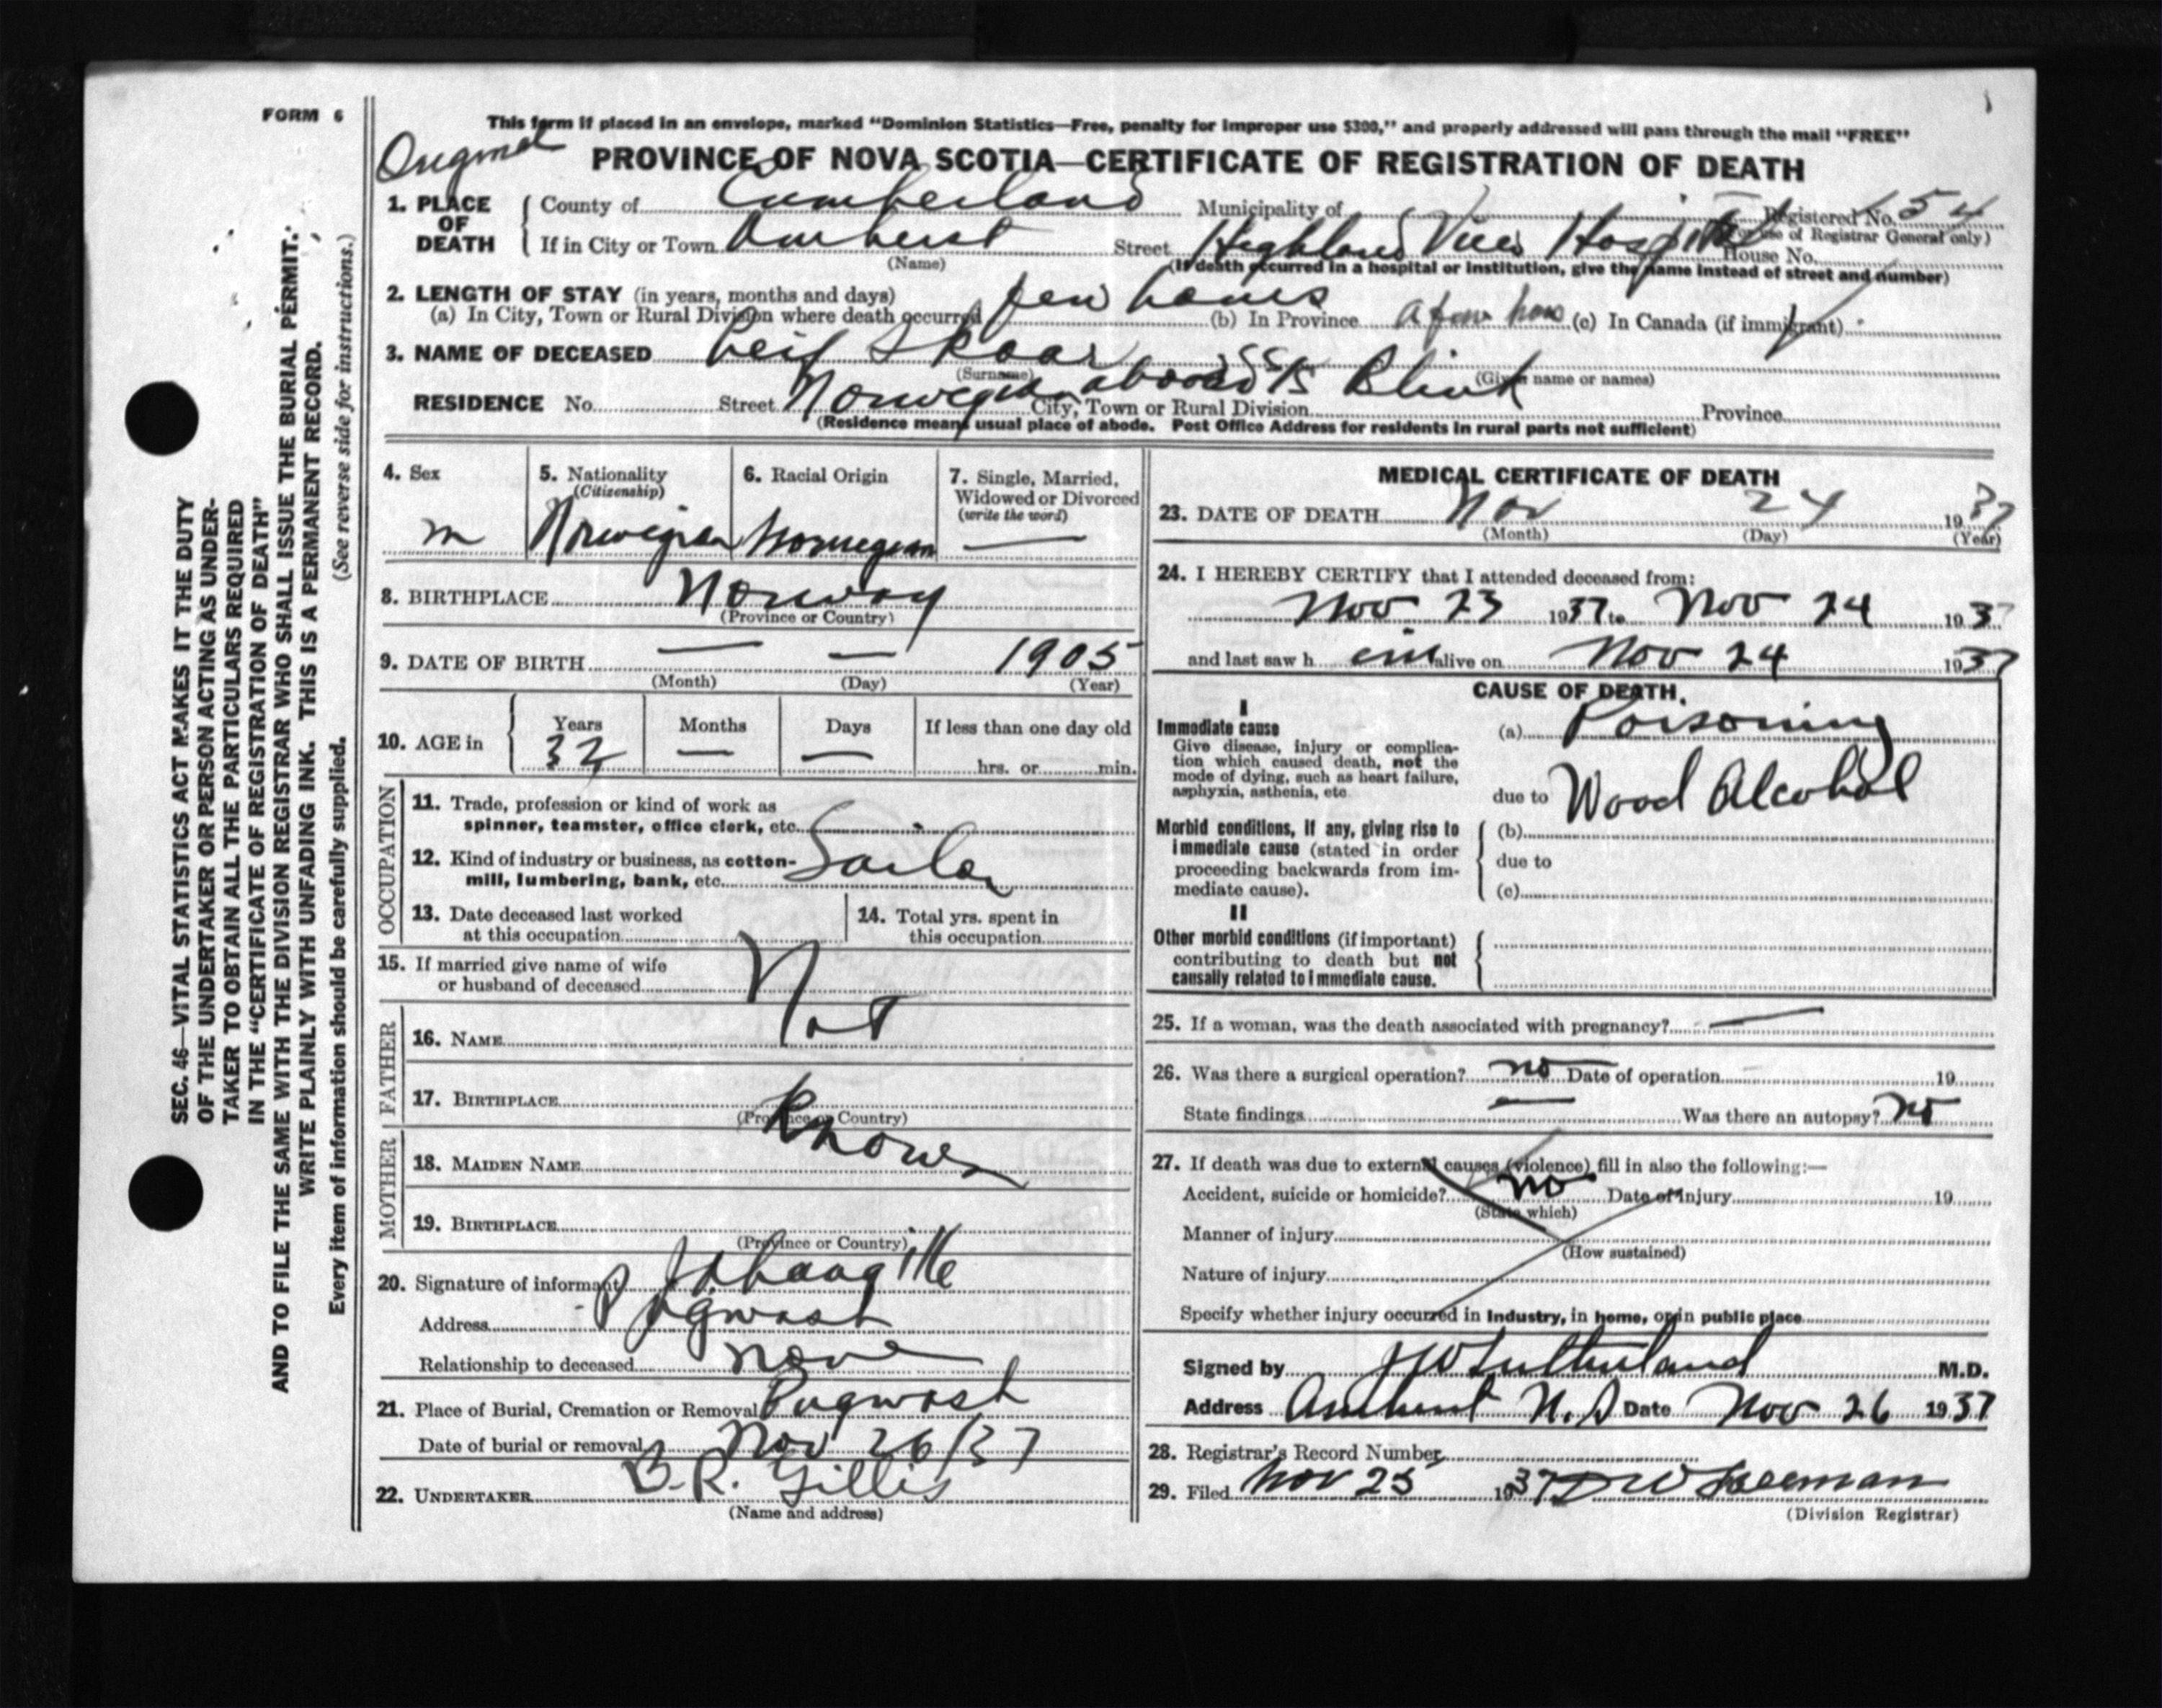 FORM 6
This form if placed in an envelope, marked "Dominion Statistics—Free, penalty for improper use $300," and properly addressed will pass through the mail "FREE"
Original
PROVINCE OF NOVA SCOTIA—CERTIFICATE OF REGISTRATION OF DEATH
1. PLACE OF DEATH
County of Cumberland Municipality of Registered No. 54
(For use of Registrar General only)
If in City or Town Amherst Street Highland View Hospital House No.
(Name) (If death occurred in a hospital or institution, give the name instead of street and number)
2. LENGTH OF STAY (in years, months and days)
(a) In City, Town or Rural Division where death occurred few hours (b) In Province a few hours (c) In Canada (if immigrant)
3. NAME OF DECEASED Leif Skaar
(Surname) (Given name or names)
RESIDENCE No. Street Norwegian aboard SS Blink City, Town or Rural Division Province
(Residence means usual place of abode. Post Office Address for residents in rural parts not sufficient)
4. Sex
m
5. Nationality
(Citizenship)
Norwegian
6. Racial Origin
Norwegian
7. Single, Married, Widowed or Divorced
(write the word)
—
8. BIRTHPLACE Norway
(Province or Country)
9. DATE OF BIRTH — — 1905
(Month) (Day) (Year)
10. AGE in
Years Months Days If less than one day old
32 — — hrs. or min.
OCCUPATION
11. Trade, profession or kind of work as
spinner, teamster, office clerk, etc.
12. Kind of industry or business, as cotton-
mill, lumbering, bank, etc. Sailor
13. Date deceased last worked
at this occupation
14. Total yrs. spent in
this occupation
15. If married give name of wife
or husband of deceased
Not
FATHER
16. NAME
17. BIRTHPLACE
(Province or Country)
Known
MOTHER
18. MAIDEN NAME
19. BIRTHPLACE
(Province or Country)
20. Signature of informant
Address Pugwash
Relationship to deceased none
21. Place of Burial, Cremation or Removal Pugwash
Date of burial or removal Nov 26/37
22. UNDERTAKER B. R. Gillis
(Name and address)
MEDICAL CERTIFICATE OF DEATH
23. DATE OF DEATH Nov 24 1937
(Month) (Day) (Year)
24. I HEREBY CERTIFY that I attended deceased from:
Nov 23 1937 to Nov 24 1937
and last saw him alive on Nov 24 1937
CAUSE OF DEATH.
I
Immediate cause
Give disease, injury or complica-
tion which caused death, not the
mode of dying, such as heart failure,
asphyxia, asthenia, etc
(a) Poisoning
due to Wood Alcohol
Morbid conditions, if any, giving rise to
immediate cause (stated in order
proceeding backwards from im-
mediate cause).
(b)
due to
(c)
II
Other morbid conditions (if important)
contributing to death but not
causally related to immediate cause.
25. If a woman, was the death associated with pregnancy? —
26. Was there a surgical operation? no Date of operation 19
State findings — Was there an autopsy? no
27. If death was due to external causes (violence) fill in also the following:—
Accident, suicide or homicide? no Date of injury 19
(State which)
Manner of injury
(How sustained)
Nature of injury
Specify whether injury occurred in industry, in home, or in public place
Signed by J W Sutherland M.D.
Address Amherst N.S Date Nov 26 1937
28. Registrar's Record Number
29. Filed Nov 25 1937
(Division Registrar)
SEC. 46—VITAL STATISTICS ACT MAKES IT THE DUTY
OF THE UNDERTAKER OR PERSON ACTING AS UNDER-
TAKER TO OBTAIN ALL THE PARTICULARS REQUIRED
IN THE "CERTIFICATE OF REGISTRATION OF DEATH"
AND TO FILE THE SAME WITH THE DIVISION REGISTRAR WHO SHALL ISSUE THE BURIAL PERMIT.
WRITE PLAINLY WITH UNFADING INK. THIS IS A PERMANENT RECORD.
Every item of information should be carefully supplied. (See reverse side for instructions.)